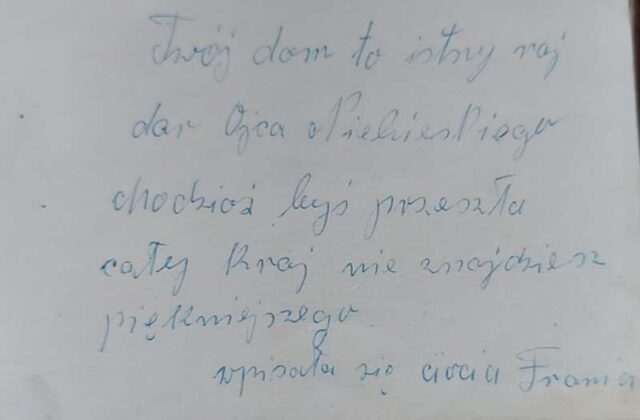 Twój dom to istny raj
dar Ojca Niebieskiego
chodziaż byś przeszła
całej Kraj nie znajdziesz
piękniejszego
wpisała się ciocia Frania